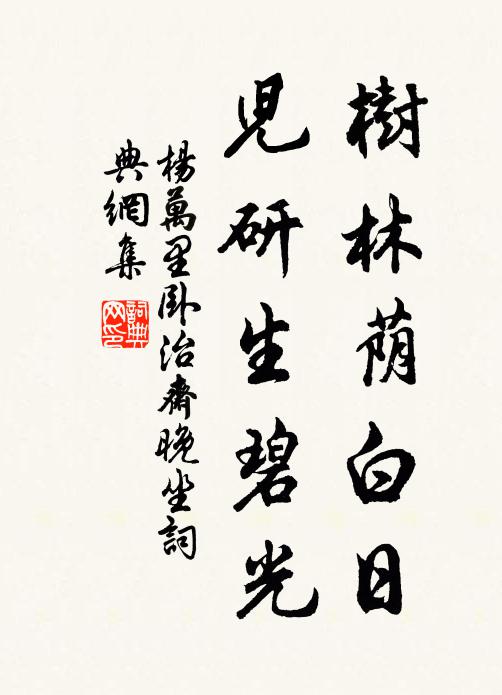 樹林荫白日
児研生碧光
楊萬里卧治齋晚坐詞
典網集
詞典網印